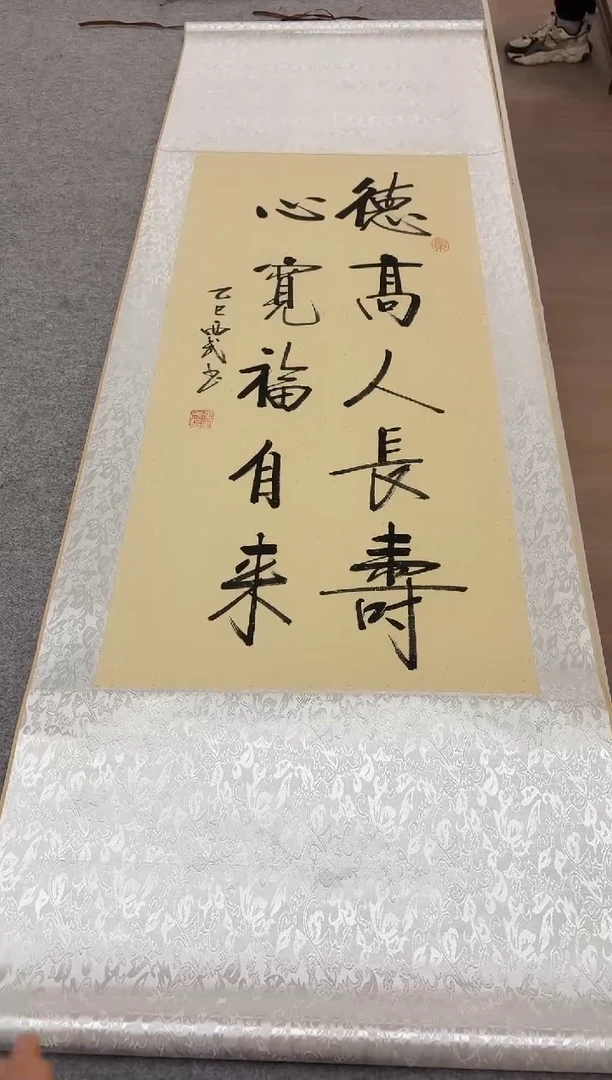 德高人長壽
心寬福自来
乙巳
书